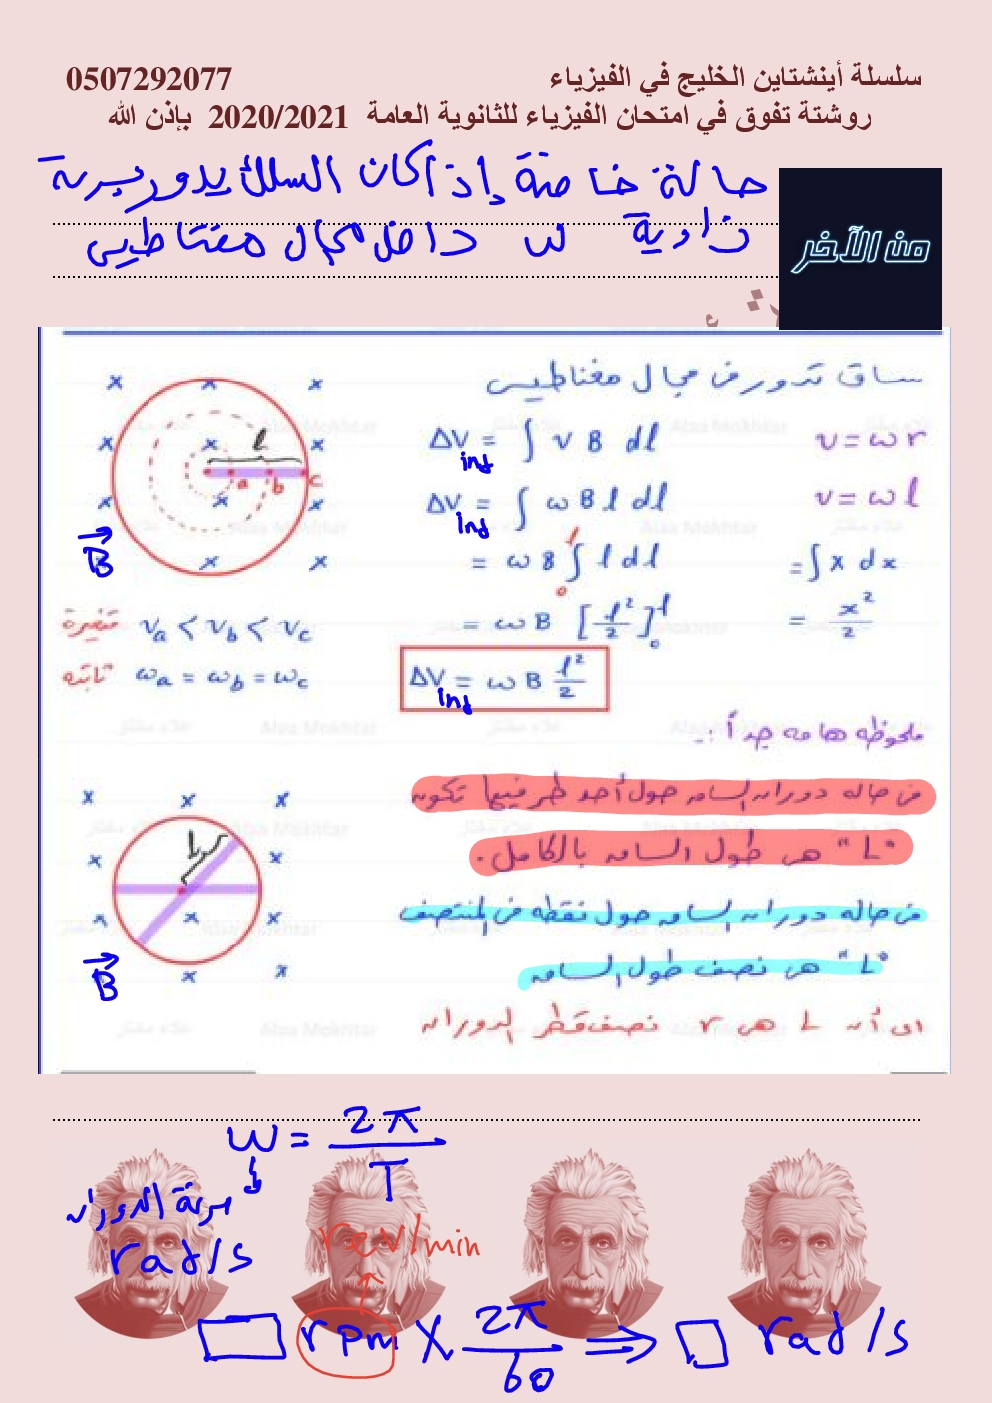 سلسلة أينشتاين الخليج في الفيزياء 0507292077
روشتة تفوق في امتحان الفيزياء للثانوية العامة 2020/2021 بإذن الله
حالة خاصة إذا كان السلك يدور بسرعة
زاوية w داخل مجال مغناطيسي
من الآخر
ساق تدور في مجال مغناطيسي
ΔV ind = ∫ v B dl
v = ω r
ΔV ind = ∫ ω B l dl
v = ω l
= ω B ∫₀ˡ l dl
= ∫ x dx
= ω B [l²/2]₀ˡ
= x²/2
ΔV ind = ω B l²/2
x x x
x x x
x x x
x x
l
a b c
B
متغيرة Va < Vb < Vc
ثابته ωa = ωb = ωc
ملحوظه هامه جداً :-
في حاله دوران الساق حول أحد طرفيها تكون
"L" هي طول الساق بالكامل.
في حاله دوران الساق حول نقطه في المنتصف
"L" هي نصف طول الساق
اي أن L هي r نصف قطر الدوران
x x x
x x
x x x
x x
L
B
w = 2π/T
سرعة الدوران
rad/s
rev/min
rpm X 2π/60 ⇒ rad/s